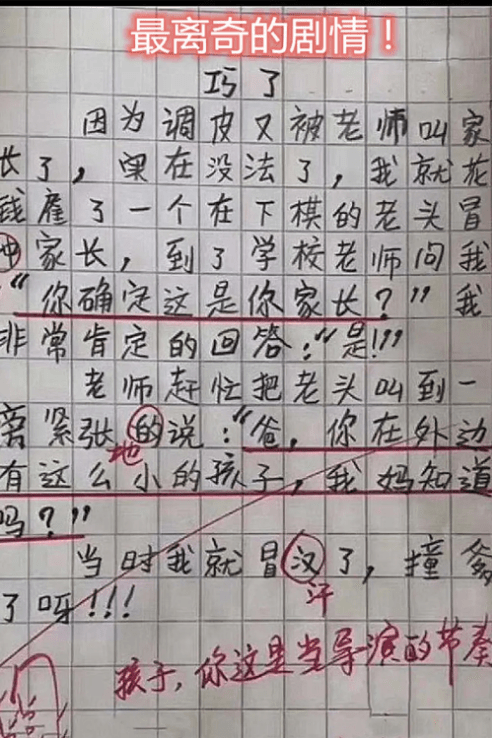 最离奇的剧情！
巧了
因为调皮又被老师叫家
长了，实在没法了，我就花
钱雇了一个在下棋的老头冒
家长，到了学校老师问我
“你确定这是你家长？”我
非常肯定的回答：“是!”
老师赶忙把老头叫到一
紧张的说：“爸，你在外边
地
有这么小的孩子，我妈知道
吗？”
当时我就冒汉了，撞爹
汗
了呀!!!
孩子，你这是当导演的节奏